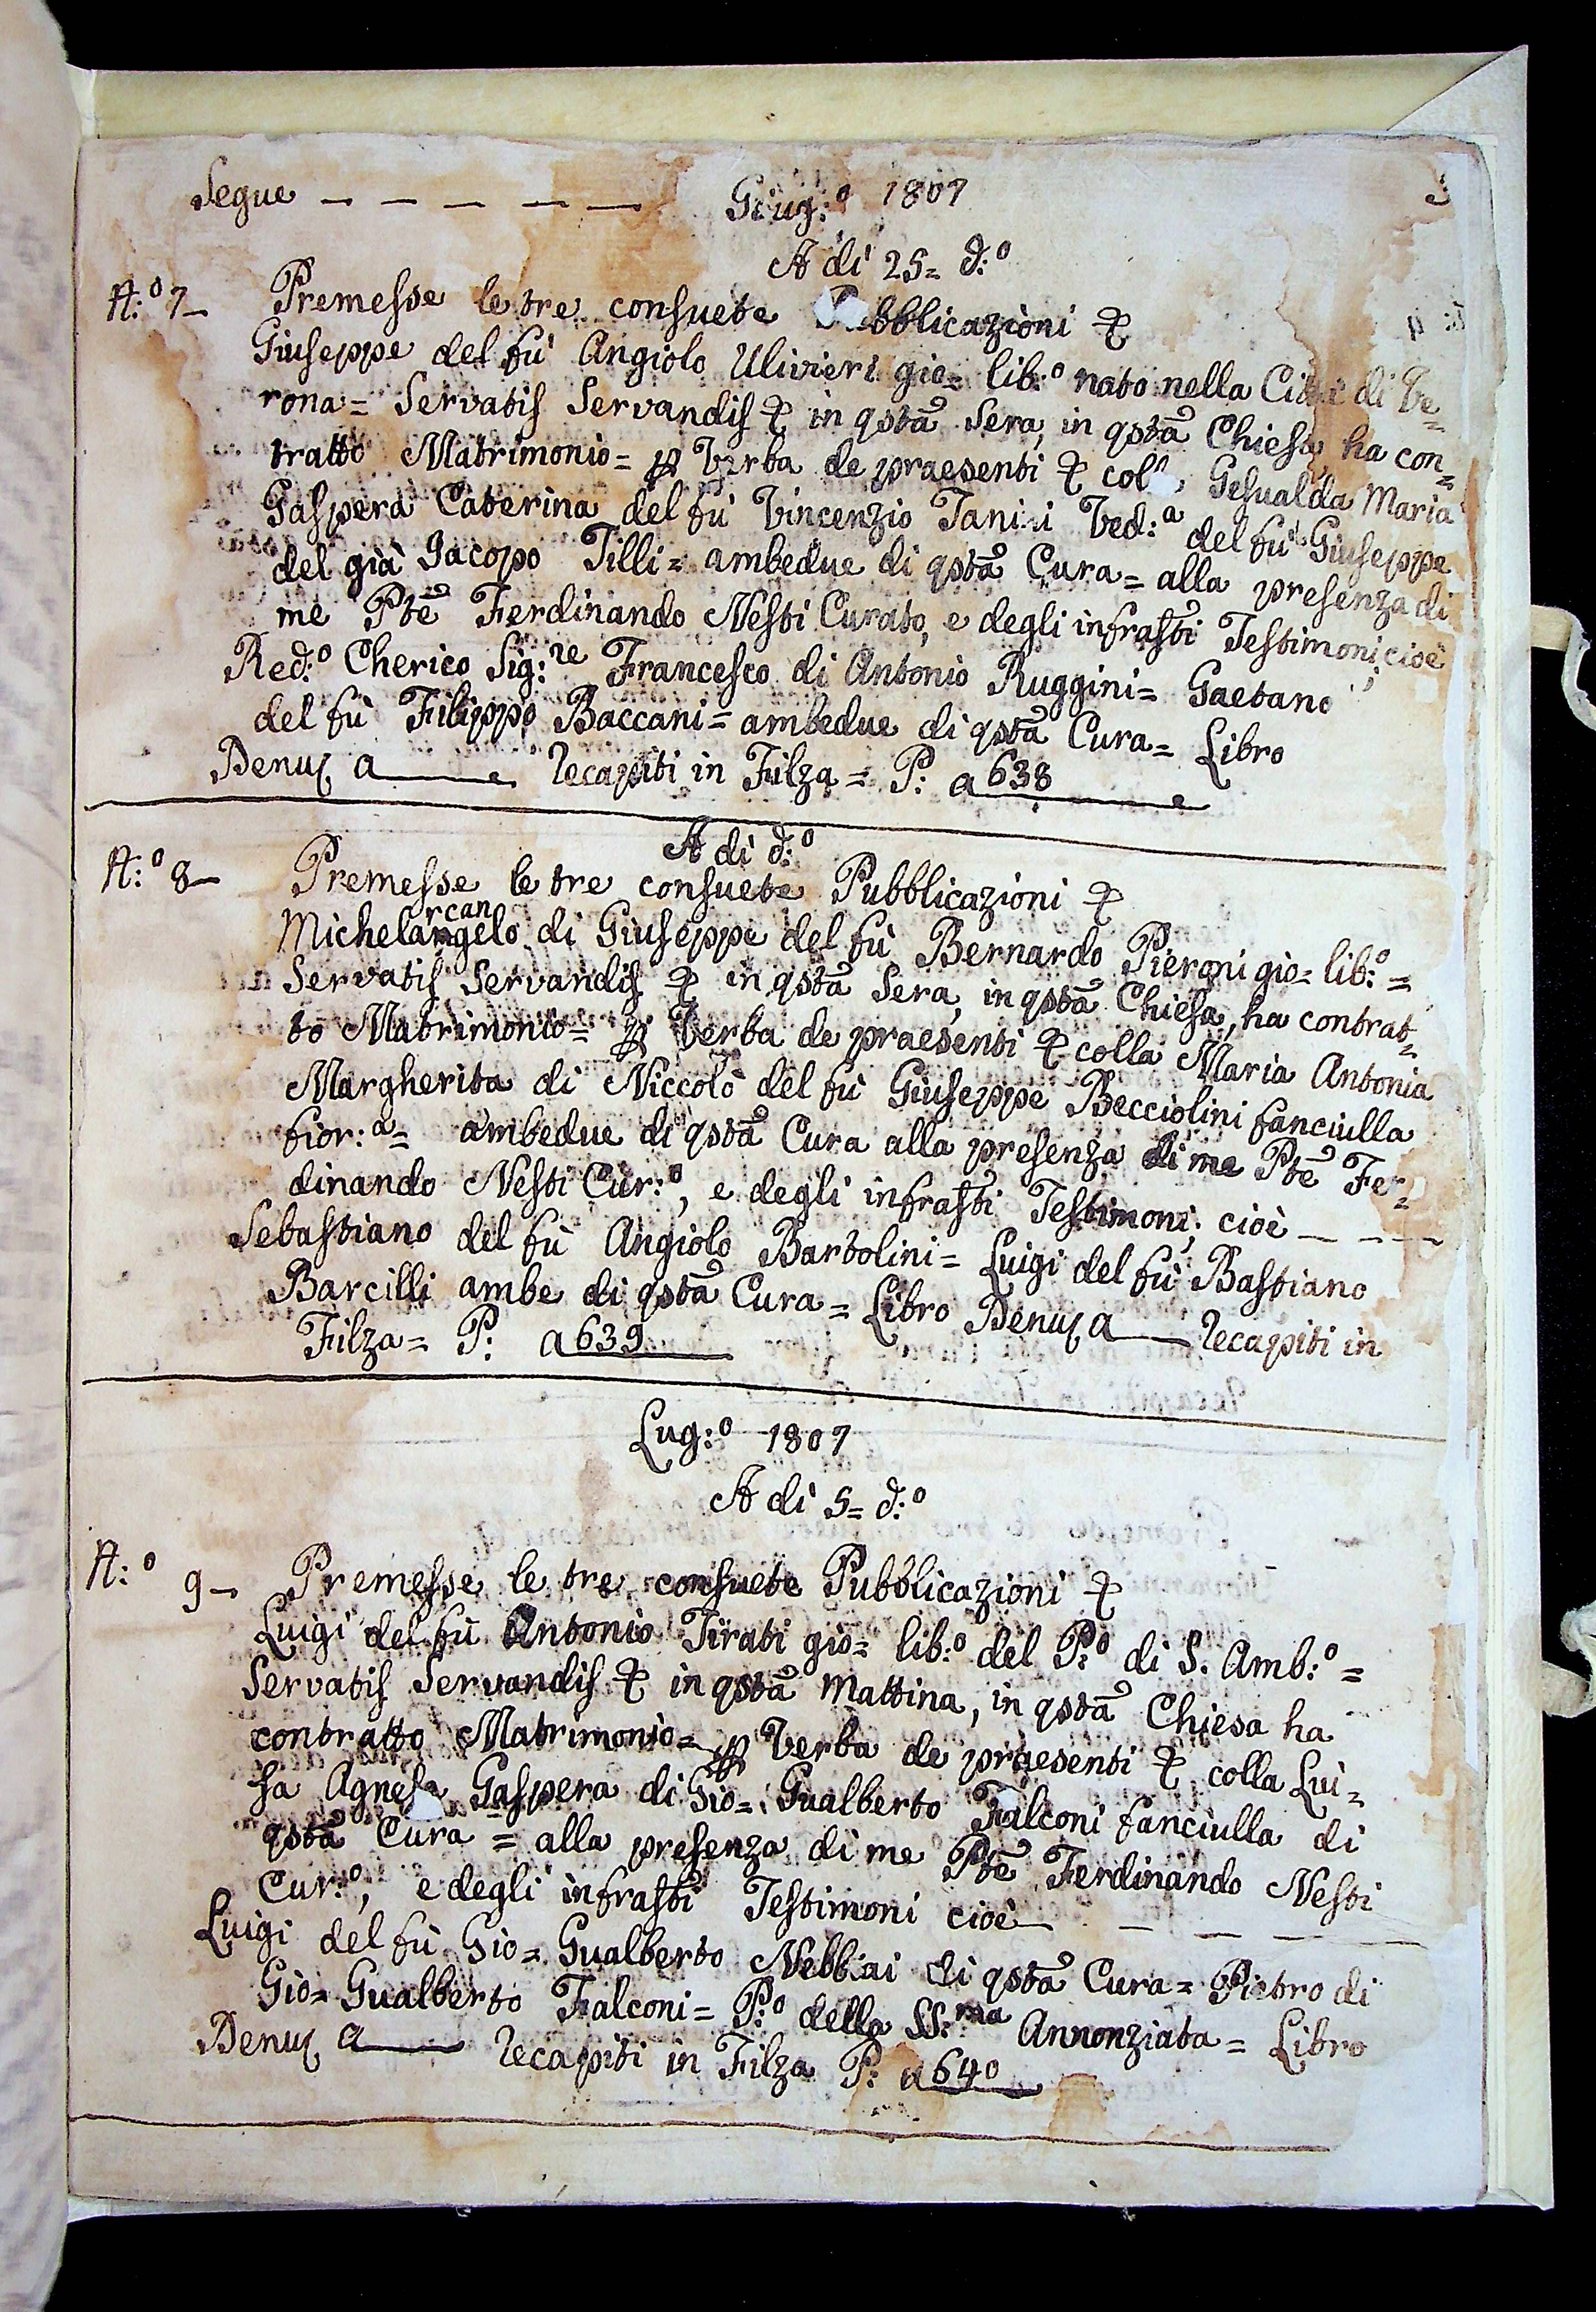 Segue — — — — — Giug:º 1807
A di 25= d:º
N:º 7— Premesse le tre consuete Pubblicazioni &
Giuseppe del fù Angiolo Ulivieri gio= lib:º nato nella Città di Ve=
rona= Servatis Servandis & in qstã Sera, in qstã Chiesa, ha con=
tratto Matrimonio= p Verba de praesenti & coll Gesualda Maria
Gaspera Caterina del fù Vincenzio Tanini Ved:ª del fù Giuseppe
del già Jacopo Tilli= ambedue di qstã Cura= alla presenza di
me Ptẽ Ferdinando Nesti Curato, e degli infrasti Testimoni; cioè
Red:º Cherico Sig:re Francesco di Antonio Ruggini= Gaetano
del fù Filippo Baccani= ambedue di qstã Cura= Libro
Denuz a—— recapiti in Filza= P: a 638
A di d:º
N:º 8— Premesse le tre consuete Pubblicazioni &
rcan
Michelangelo di Giuseppe del fù Bernardo Pieroni gio= lib:º=
Servatis Servandis & in qstã Sera, in qstã Chiesa, ha contrat=
to Matrimonio= p Verba de praesenti & colla Maria Antonia
Margherita di Niccolò del fù Giuseppe Becciolini fanciulla
fior:ª= ambedue di qstã Cura alla presenza di me Ptẽ Fer=
dinando Nesti Cur:º, e degli infrasti Testimoni; cioè — — —
Sebastiano del fù Angiolo Bartolini= Luigi del fù Bastiano
Barcilli ambe di qstã Cura= Libro Denuz a—— recapiti in
Filza= P: a 639
Lug:º 1807
A di 5= d:º
N:º 9— Premesse le tre consuete Pubblicazioni &
Luigi del fù Antonio Tirati gio= lib:º del P:º di S. Amb:º=
Servatis Servandis & in qstã Mattina, in qstã Chiesa ha
contratto Matrimonio= p Verba de praesenti & colla Lui=
sa Agnesa Gaspera di Gio= Gualberto Falconi fanciulla di
qstã Cura= alla presenza di me Ptẽ Ferdinando Nesti
Cur:º, e degli infrasti Testimoni cioè — — — —
Luigi del fù Gio= Gualberto Nebbiai di qstã Cura= Pietro di
Gio= Gualberto Falconi= P:º della SS:ma Annonziata= Libro
Denuz a—— recapiti in Filza P: a 640